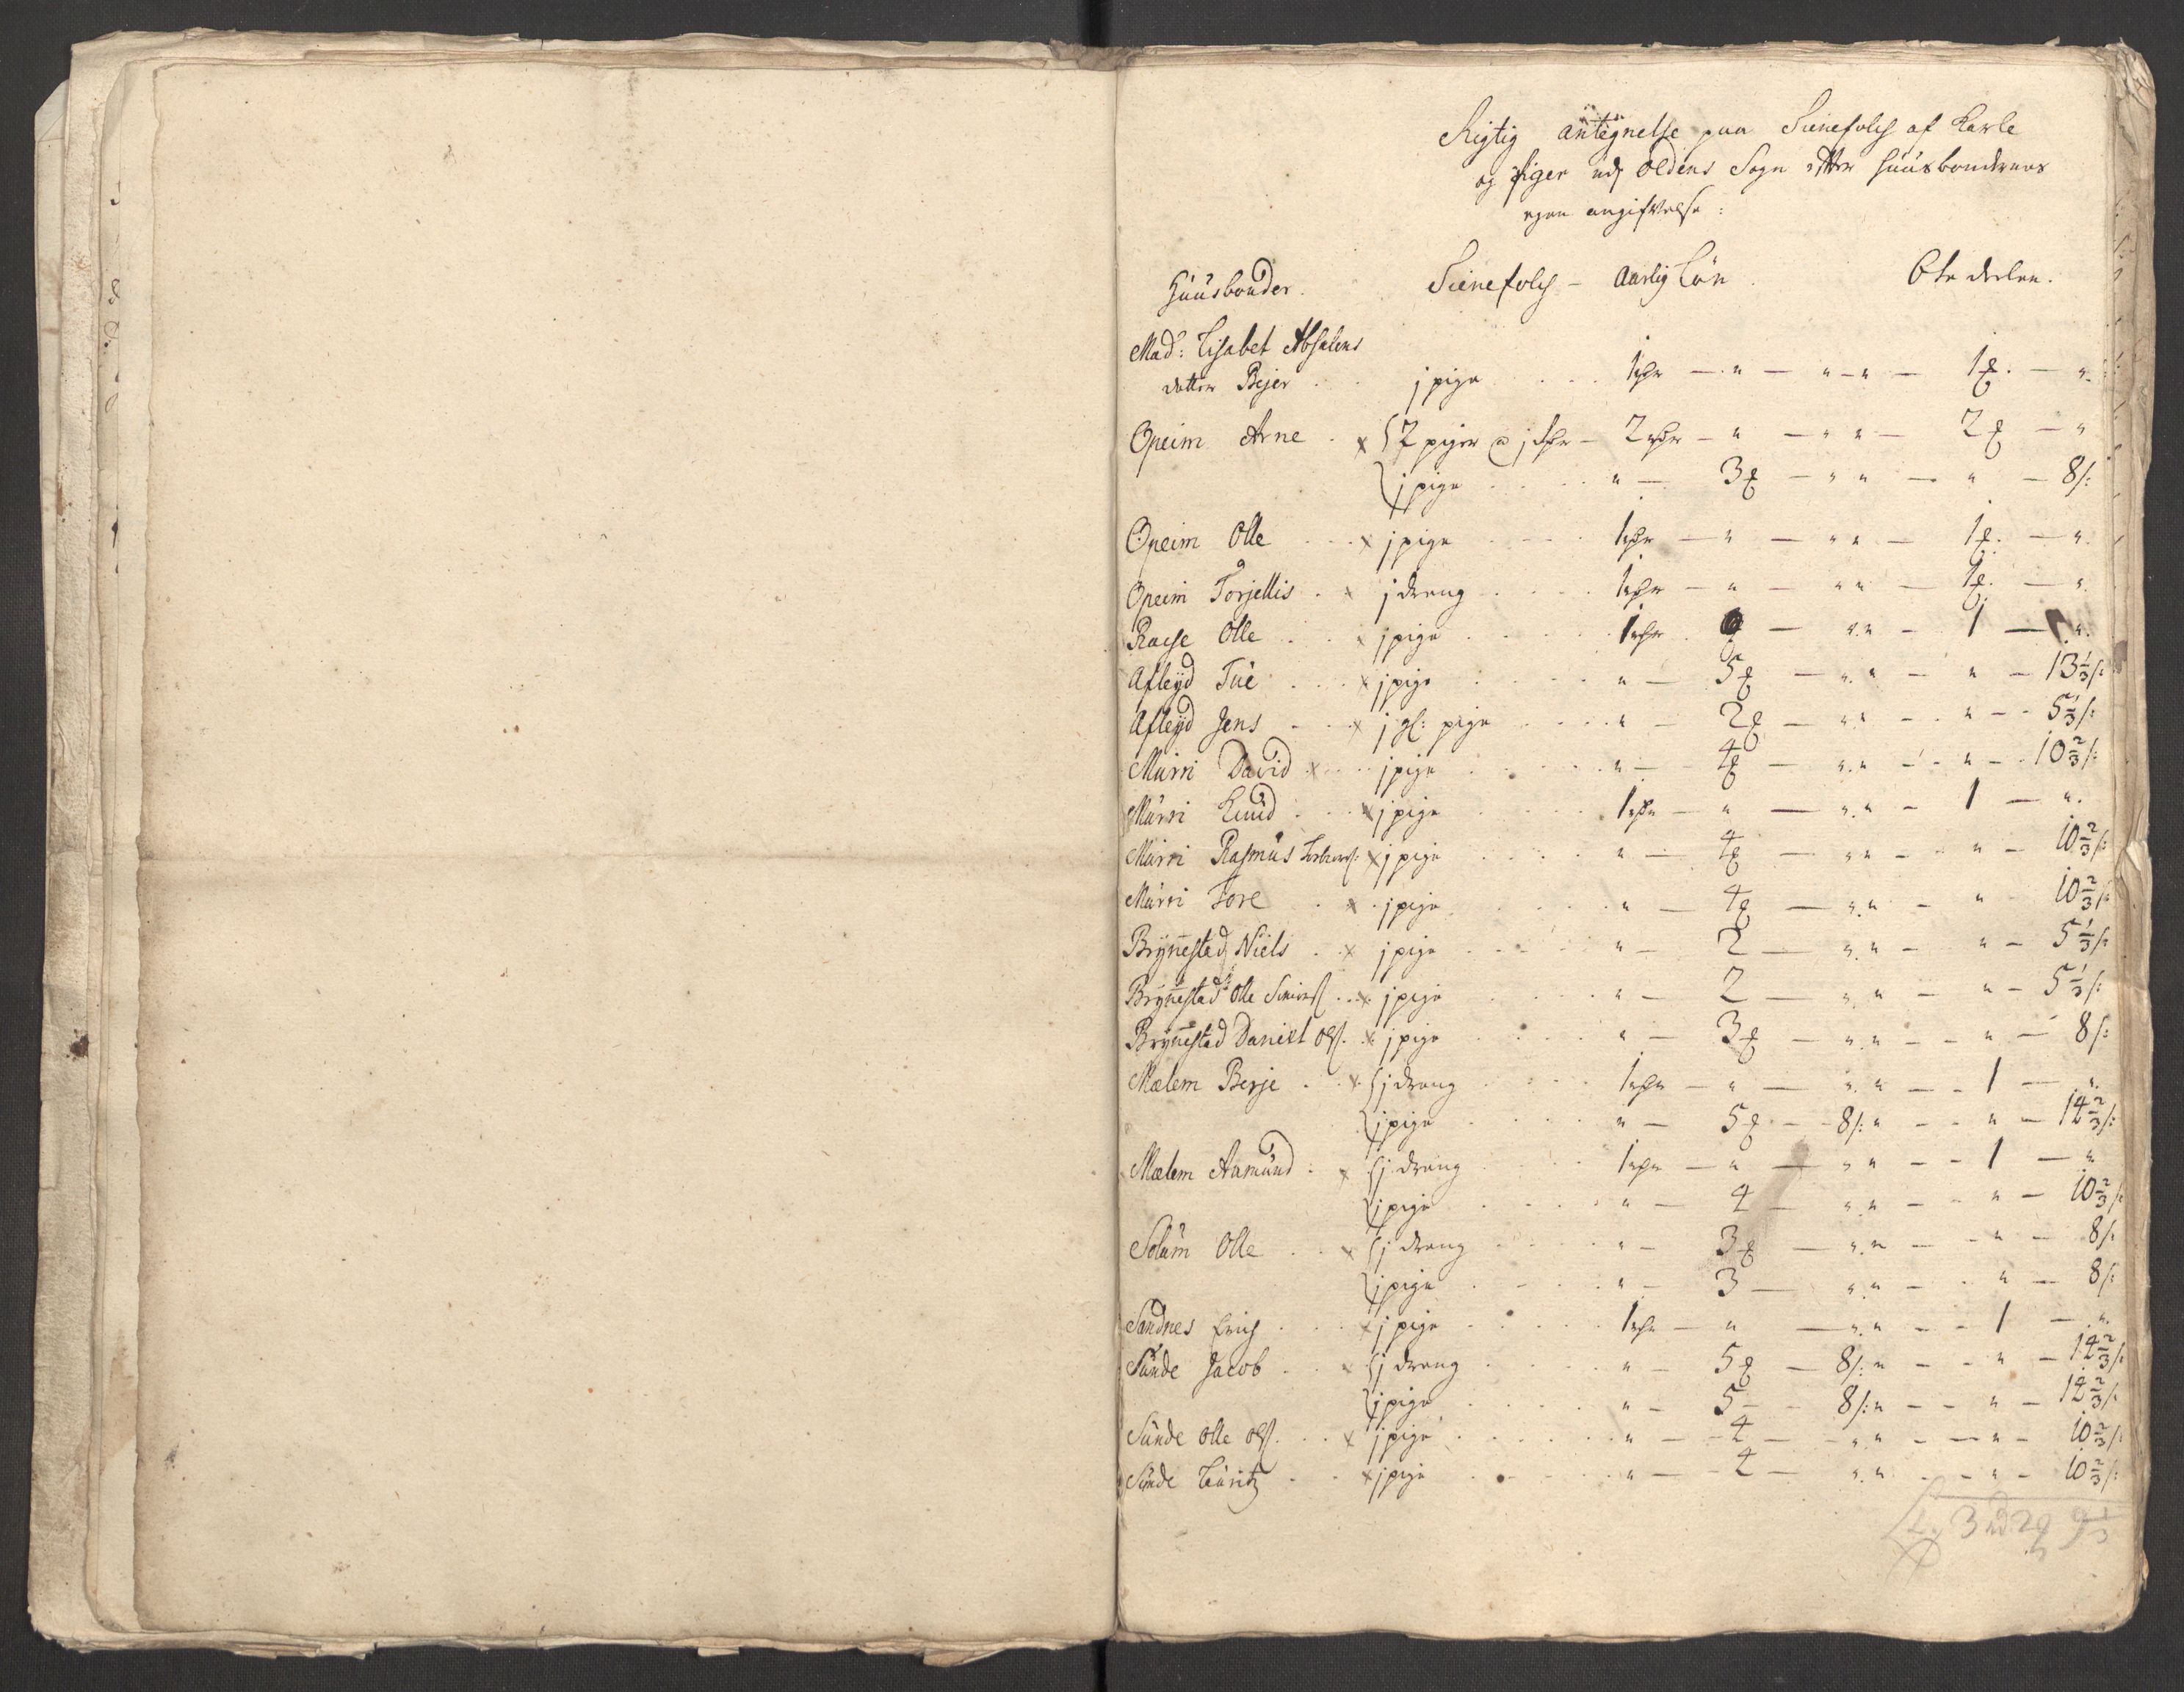 Rigtig antegnelse paa Tienefolch af Karle
og piger udj Oldens Sogn efter huusbondernes
egen angifvelse:
Huusbonder. Tienefolch - Aarlig Løn. 6te deelen.
Mad: Lisabet Absalons
datter Bejer . . j pige . . . 1 rdr - " - " - " - 1 ꝑ. - "
Opeim Arne . x 2 piger a j rdr - 2 rdr - " - " " - 2 ꝑ - "
j pige . . . . " - 3 ꝑ - " " - " - 8 s:
Opeim Olle . . . x j pige . . . . 1 rdr - " - " " - 1 ꝑ. - "
Opeim Torjellis . x j dreng . . . . 1 rdr - " - " " - 1 ꝑ. - "
Raese Olle . . . x j pige . . . . 1 rdr . - " " - 1 - "
Afleyd Tue . . . x j pige . . . . " - 5 ꝑ - " " - " - 13 1/3 s:
Afleyd Jens - . . x j gl: pige . . . . " - 2 ꝑ - " " - " - 5 1/3 s:
Murri David x . . j pige . . . . " - 4 ꝑ - " " - " - 10 2/3 s:
Murri Knud . . . x j pige . . . 1 rdr - " - " " - 1 - "
Murri Rasmus x j pige . . . . " - 4 ꝑ - " " - " - 10 2/3 s:
Murri Tore . x . j pige . . . . " - 4 ꝑ - " " - " 10 2/3 s:
Brynnestad Niels . . x j pige . . . . " - 2 - " " - " - 5 1/3 s:
Brynnestad Olle Simens . . x j pige . . . . " - 2 - " " - " - 5 1/3 s:
Brynnestad Daniel Ols. x j pige . . . . " - 3 ꝑ - " " - " - 8 s:
Mælem Berje . . x j dreng . . . 1 rdr - " - " " - - 1 - "
j pige . . . . " - 5 ꝑ - 8 s: " - " - 14 2/3 s:
Mælem Aamund . x j dreng . . . 1 rdr - " - " " - - 1 - "
j pige . . . . " - 4 - " " - " - 10 2/3 s:
Solum Olle . . x j dreng . . . . " - 3 ꝑ - " " - " - 8 s:
j pige . . . . " - 3 - " " - " - 8 s:
Sandnes Erich . . . x j pige . . . . 1 rdr - " - " " - - 1 - "
Sunde Jacob . . x j dreng . . . " - 5 ꝑ - 8 s: " - " - 14 2/3 s:
j pige . . . . " - 5 - 8 s: " - - " - 14 2/3 s:
Sunde Olle Ols. . . x j pige . . . . " - 4 - " " - " - 10 2/3 s:
Sunde Lauritz . . x j pige . . . . " - 4 - " " - " - 10 2/3 s:
3 rd 2 ꝑ 9 1/3